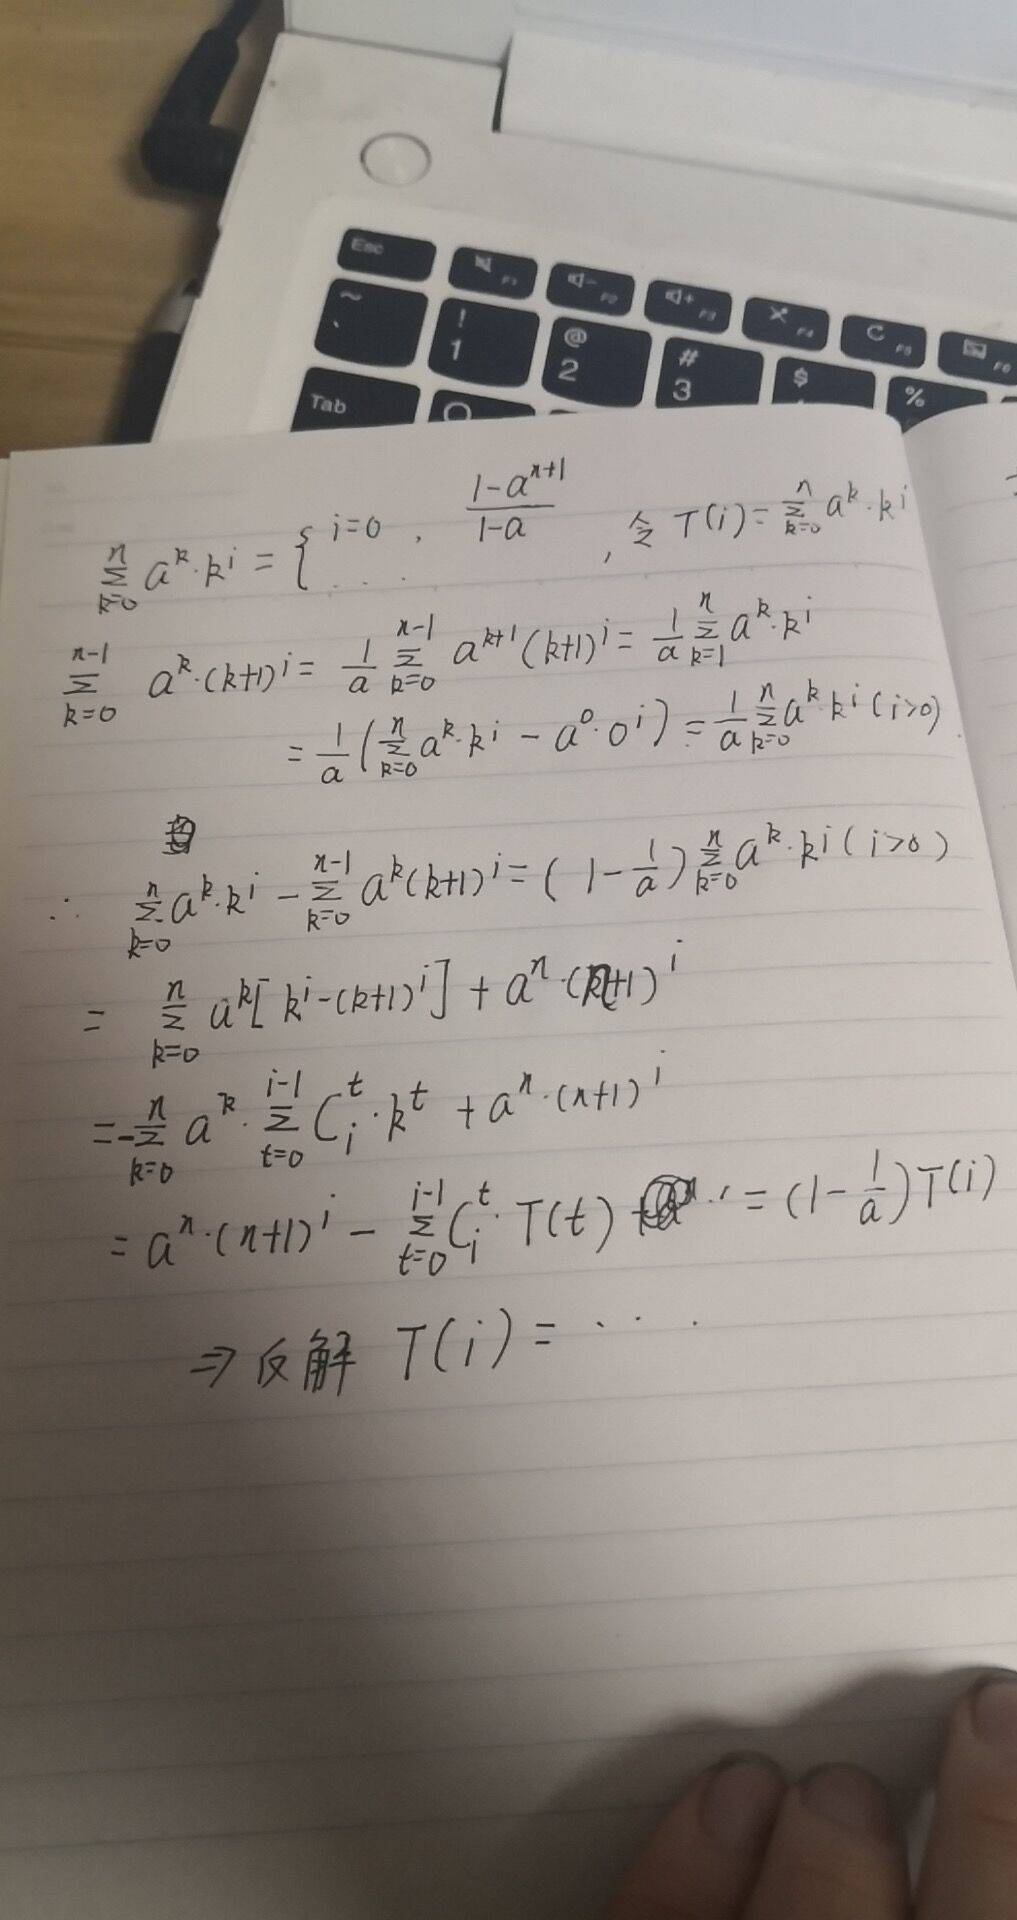 Esc F1 F2 F3 F4 F5 F6
~ ` ! 1 @ 2 # 3 $ %
Tab Q
\sum_{k=0}^{n} a^k·k^i = { i=0, \frac{1-a^{n+1}}{1-a} ...., 令 T(i)=\sum_{k=0}^{n} a^k·k^i
\sum_{k=0}^{n-1} a^k·(k+1)^i = \frac{1}{a} \sum_{k=0}^{n-1} a^{k+1}(k+1)^i = \frac{1}{a} \sum_{k=1}^{n} a^k·k^i
= \frac{1}{a} (\sum_{k=0}^{n} a^k·k^i - a^0·0^i) = \frac{1}{a} \sum_{k=0}^{n} a^k·k^i (i>0).
∴ \sum_{k=0}^{n} a^k·k^i - \sum_{k=0}^{n-1} a^k(k+1)^i = (1-\frac{1}{a}) \sum_{k=0}^{n} a^k·k^i (i>0)
= \sum_{k=0}^{n} a^k[k^i-(k+1)^i] + a^n·(n+1)^i
= -\sum_{k=0}^{n} a^k·\sum_{t=0}^{i-1} C_i^t·k^t + a^n·(n+1)^i
= a^n·(n+1)^i - \sum_{t=0}^{i-1} C_i^t·T(t) = (1-\frac{1}{a})T(i)
⇒ 反解 T(i) = ...